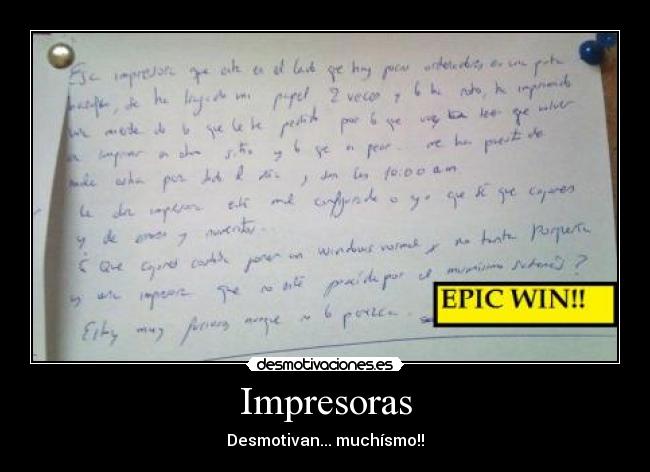 Esa impresora que esta en el lado que hay pocos ordenadores es una puta
basofia, se ha tragado mi papel 2 veces y lo ha roto, ha imprimido
una mierda de lo que le he pedido por lo que voy a tener que volver
a imprimir en otro sitio y lo que es peor. me ha puesto de
mala ostia para todo el día, y son las 10:00 a.m.
La otra impresora está mal configurada o yo que sé que cojones
y da errores y
¿Que cojones costaba poner un windows normal y no tanta Porquería
y una impresora que no esté poseída por el mismísimo Satanás?
Estoy muy furioso aunque no lo parezca.
EPIC WIN!!
desmotivaciones.es
Impresoras
Desmotivan... muchísmo!!